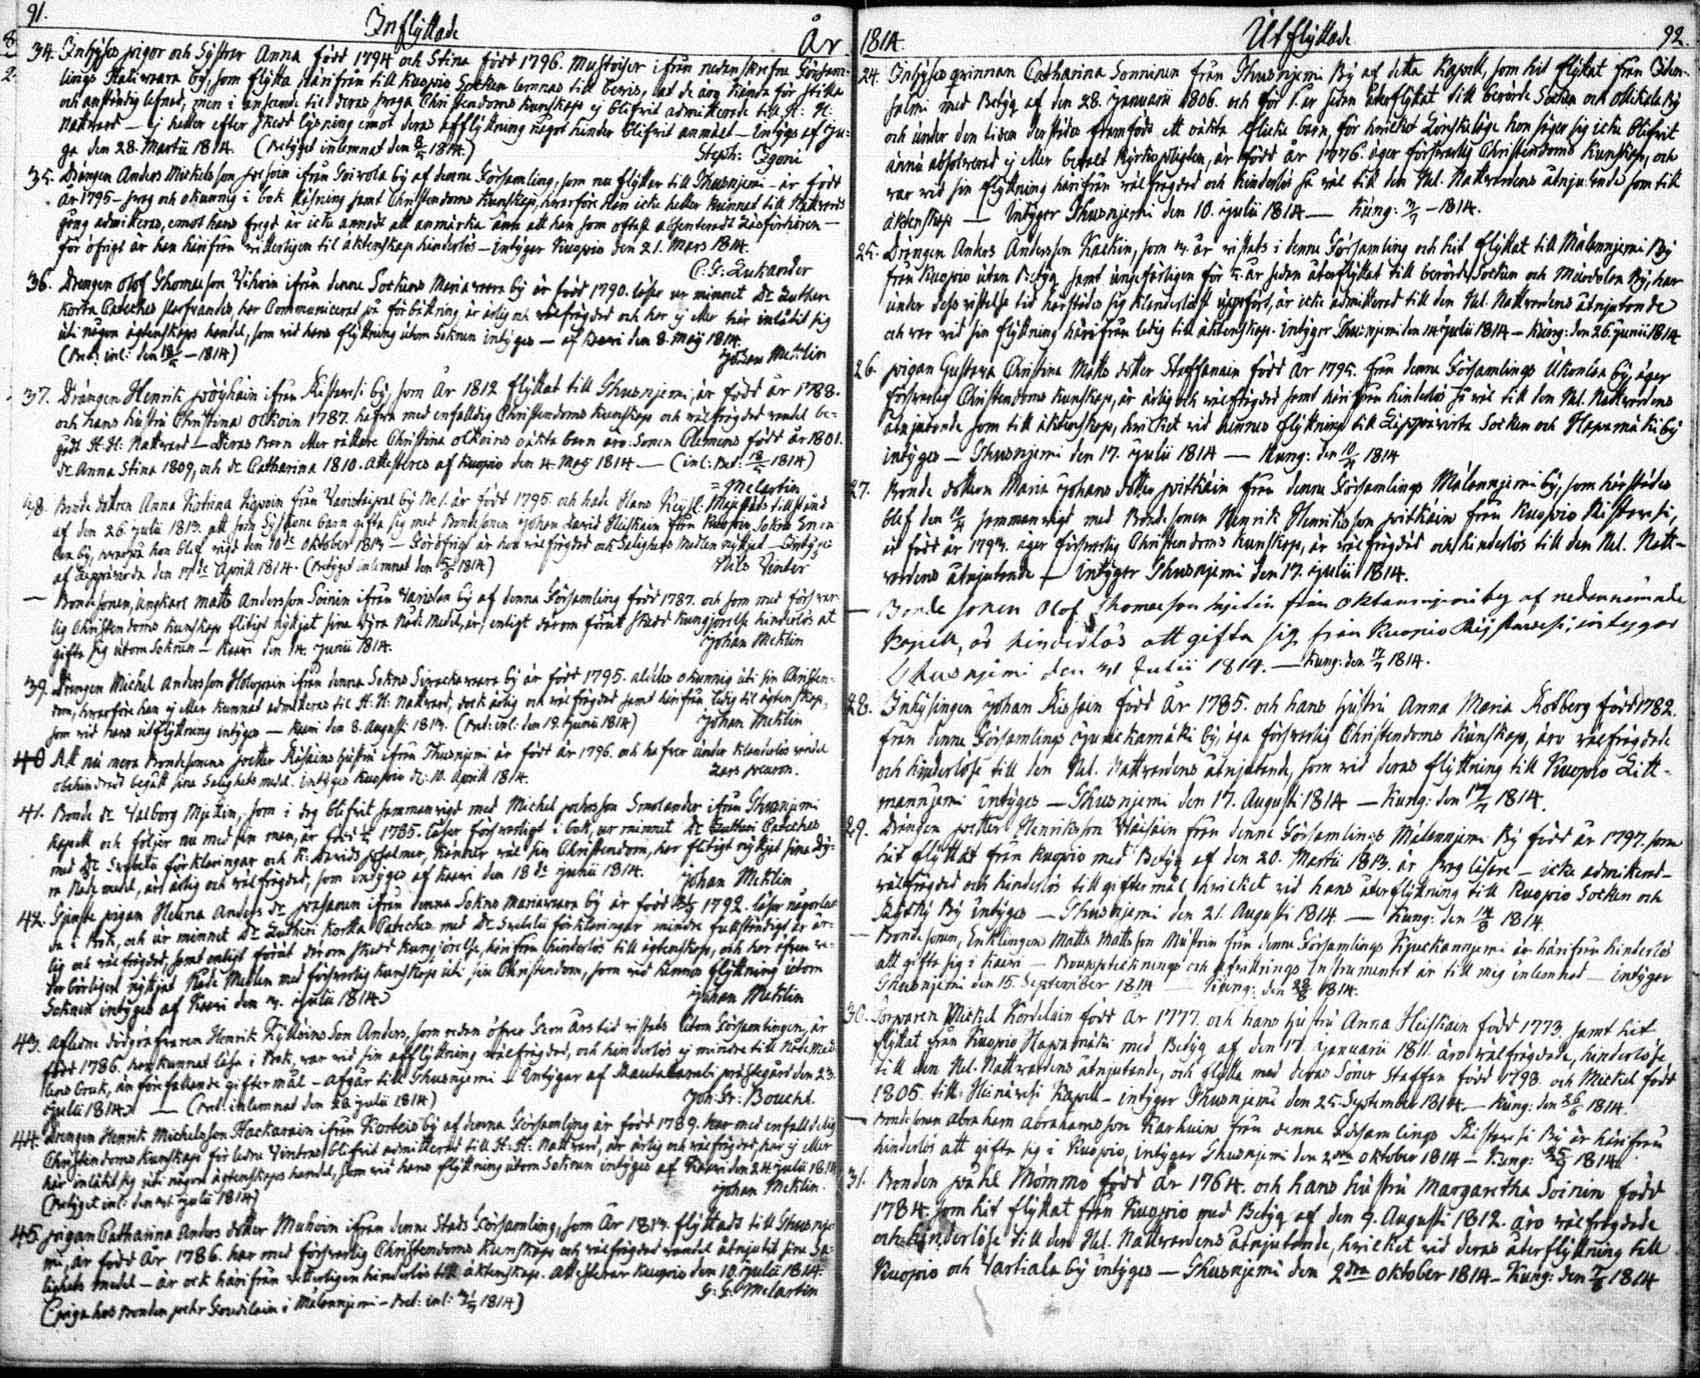 91.
Inflyttade
År
34. Inhyses pigor och Systrar Anna född 1794 och Stina född 1796. Mustoiser ifrån nedanskrefne Församlings
by, som flytta härifrån till Kuopio Socken lemnas till bevis, at de äro kända för stilla
och anständig lefnad, men i anseende til deras svaga Christendoms kunskap ej blifvit admitterade till H: H:
Nattvard — ej heller efter skedd lysning emot deras afflyttning något hinder blifvit anmält — Intygas af
den 28. Martii 1814. (Betyget inlemnat den 1814.)
Steph:
35. Drängen Anders Mickelsson ifrån by af denna Församling, som nu flyttar till Thusnjemi — är född
År 1795 — svag och okunnig i bok läsning samt Christendoms kunskap, hvarföre han icke heller kunnat till Nattvards
gång admitteras, emot hans frägd är icke annat att anmärka änn att han som oftast absenterat Läsförhören —
för öfrigt är han härifrån til äktenskap hinderlös — intygar Kuopio den 21. Mars 1814.
C: G: Lukander
36. Drengen Olof Thomasson ifrån denne Sockens Mariavaara by är född 1790. läser ur minnet Dr Lutheri
Korta Cateches har Communicerat på förbättring är ärlig och välfrägdad och har ej eller här inlåtit sig
uti någon ägtenskaps handel, som vid hans flyttning utom Soknen intygas — af Kaavi den 8. Maij 1814.
(Bet: inl: den — 1814)
Johan Mehlin
37. Drängen Henrik ifrån by, som År 1812 flyttat till Thusnjemi, är född år 1788.
och hans hustru Christina Olkoin 1787. hafva med enfaldig Christendoms kunskap och välfrägdad vandel
H: H: Nattvard — deras Barn eller rättare Christina Olkoins oäkta barn äro: Sonen Clemens född år 1801.
Dr Anna Stina 1809, och Dr Catharina 1810. attesteras af Kuopio den 4. Maj 1814 — (inl: Bet: 1814)
Melartin
38. Bonde dottren Anna Kristina från by är född 1795. och hade Hans Keijs: Maj:ts tillstånd
af den 26. Julii 1813. att som Syskone barn gifta sig med Bondesonen Johan David Heiskain från Kuopio Sokn
by, hon blef vigd den 10de Oktober 1813 — För öfrigt är hon välfrägdad och Salighets Medlen nyttjat — intygar
af den Aprill 1814. (Betyget inlemnat den 1814)
Nils Winter
— Bondesonen, ungkarl Matts Andersson Soinin ifrån by af denna Församling född 1787. och som med försvar-
lig Christendoms kunskap flitigt nyttjat sina Nåde Medel, är, enligt derom förut skedd kungjörelse hinderlös at
gifta sig utom Soknen — Kaavi den 14. Junii 1814.
Johan Mehlin
39. Drengen Michel Andersson ifrån denna Sokns by är född 1795. alldeles okunnig uti sin Christen-
dom, hvarföre han ej eller kunnat admitteras til H: H: Nattvard, dock ärlig och välfrägdad samt härifrån ledig til ägtenskap,
som vid hans utflyttning intygas — Kaavi den 8. Augusti 1813. (Bet: inl: den 19. Junii 1814)
Johan Mehlin
40. Att nu mera Bondesonens Petter hustru ifrån Thusnjemi är född år 1796. och har under klanderlös vandel
obehindrad begått sina Salighets medel. intygas Kuopio d: 10. Aprill 1814.
Lars Neuron.
41. Bonde Dr Valborg Mjettin, som i dag blifvit sammanvigd med Michel Johansson Smolander ifrån Thusnjemi
Kapell och följer nu med sin man, är född 1785. läser försvarligt i bok, ur minnet Dr Lutheri Cateches
med Dr Svebelii förklaringar och K: Davids psalmer, känner väl sin Christendom, har flitigt nyttjat sina
Nåde medel, är ärlig och välfrägdad, som intygas af Kaavi den 18de Junii 1814.
Johan Mehlin
42. Tjänste pigan Helena Anders Dr ifrån denna Sokns Mariavaara by är född 1792. läser någorlunda
i bok, och ur minnet Dr Lutheri Korta Cateches med Dr Svebelii förklaringar mindre fullständigt är är-
lig och välfrägdad, samt enligt förut derom skedd kungjörelse, härifrån hinderlös till ägtenskap, och har
nyttjat Nåde Medlen med försvarlig kunskap uti sin Christendom, som vid hennes flyttning utom
Soknen intygas af Kaavi den Julii 1814.
Johan Mehlin
43. Aflidne Henrik Son Anders, som redan öfver fem års tid vistats utom Församlingen, är
född 1786. har kunnat läsa i Bok, var vid sin afflyttning välfrägdad, och hinderlös ej mindre till Nåde Med-
lens bruk, än förefallande giftermål — afgår till Thusnjemi — Intygar af prästgård den 23.
Julii 1814. — (Bet: inlemnat den 28. Julii 1814)
Joh: Fr: Boucht
44. Drengen Henrik Michelsson Hackarain ifrån by af denna Församling är född 1789. har med enfaldelig
Christendoms kunskap blifvit admitterad till H: H: Nattvard, är ärlig och välfrägdad, har ej eller
här inlåtit sig uti någon ägtenskaps handel, som vid hans flyttning utom Soknen intygas af Kaavi den 24. Julii 1814
(Betyget inl: den Julii 1814)
Johan Mehlin.
45. Pigan Catharina Anders dotter Muhoin ifrån denne Stads Församling, som År 1813. flyttade till Thusnje-
mi, är född År 1786. har med försvarlig Christendoms kunskap och välfrägdad vandel åtnjutit sina Sa-
lighets medel — är ock härifrån hinderlös till äktenskap. attesterar Kuopio den 10. Julii 1814.
(piga hos Bonden Petter i Mälonnjemi — Bet: inl: 1814)
G: G: Melartin
1814.
Utflyttade
92.
24. Inhyses qvinnan Catharina Sonninen från Thusnjemi By af detta Kapell, som hit flyttat från Iden-
salmi med Betyg af den 28. Januarii 1806. och för år sedan återflyttat till berörde Socken och By
och under den tiden derstädes framfödt ett oäkta flicke barn, för hvilket Lönskaläge hon säger sig icke blifvit
ännu absolverad ej eller betalt Kyrkopligten, är född år 1776. äger försvarlig Christendoms kunskap, och
var vid sin flyttning härifrån välfrägdad och hinderlös så väl till den Hel. Nattvardens åtnjutande som till
äktenskap — Intygar Thusnjemi den 10. Julii 1814 — Kung: — 1814.
25. Drängen Anders Andersson Kaikin, som år vistats i denne Församling och hit flyttat till Mälonnjemi By
från Kuopio utan Betyg samt ungefärligen för år sedan återflyttat till berörde Socken och By, har
under dess vistelse tid härstädes sig klanderlöst uppfört, är icke admitterad till den Hel. Nattvardens åtnjutande
och var vid sin flyttning härifrån ledig till äktenskap. intygar Thusnjemi den 14 Julii 1814 — Kung: den 26. Junii 1814
26. Pigan Gustava Christina Matts dotter Staffanain född År 1795. från denne Församlings Ukonlax by, äger
försvarlig Christendoms kunskap, är ärlig och välfrägdad samt härifrån hinderlös så väl till den Hel. Nattvardens
åtnjutande som till äktenskap, hvilket vid hennes flyttning till Leppävirta Socken och Haapamäki by
intygas — Thusnjemi den 17. Julii 1814 — Kung: den 1814
27. Bonde dottern Maria Johans dotter Pitkäin från denne Församlings Mälonnjemi by, som härstädes
blef den sammanvigd med Bonde Sonen Henrik Henriksson Pitkäin från Kuopio
är född år 1793. äger försvarlig Christendoms kunskap, är välfrägdad och hinderlös till den Hel. Natt-
vardens åtnjutande — intygar Thusnjemi den 17. Julii 1814.
— Bonde sonen Olof Thomasson från by af nedannämnde
Kapell, är hinderlös att gifta sig från Kuopio intygar
Thusnjemi den 31 Julii 1814. — Kung: den 1814.
28. Inhysingen Johan född År 1785. och hans hustru Anna Maria Kodberg född 1782.
från denne Församlings by, äga försvarlig Christendoms kunskap, äro välfrägdade
och hinderlöse till den Hel. Nattvardens åtnjutande, som vid deras flyttning till Kuopio
intygas — Thusnjemi den 17. Augusti 1814 — Kung: den 1814.
29. Drängen Petter Henriksson Väisäin från denne Församlings Mälonnjemi By född år 1797. som
hit flyttat från Kuopio med Betyg af den 20. Martii 1813. är svag läsare — icke admitterad —
välfrägdad och hinderlös till giftermål hvilket vid hans återflyttning till Kuopio Socken och
By intygas — Thusnjemi den 21. Augusti 1814 — Kung: den 1814
— Bondesonen, Enklingen Matts Mattsson från denne Församlings är härifrån hinderlös
att gifta sig i Kaavi — Bouppteknings och afvittrings Instrumentet är till mig inlemnat — intygar
Thusnjemi den 15. September 1814 — Kung: den 1814.
30. Torparen Mickel Kärdeläin född År 1777. och hans hustru Anna Heiskain född 1773. samt hit
flyttat från Kuopio Haapamäki med Betyg af den Januarii 1811. äro välfrägdade, hinderlöse
till den Hel. Nattvardens åtnjutande, och flytta med deras Söner Staffan född 1798. och Mickel född
1805. till Heinävesi Kapell — intygar Thusnjemi den 25. September 1814. — Kung: den 1814.
— Bondesonen Abraham Abrahamsson Karhuin från denne Församlings By är härifrån
hinderlös att gifta sig i Kuopio, intygar Thusnjemi den 2dra Oktober 1814 — Kung: 1814.
31. Bonden Påhl Mömmö född År 1764. och hans hustru Margaretha Soinin född
1784. som hit flyttat från Kuopio med Betyg af den 9. Augusti 1812. äro välfrägdade
och hinderlöse till den Hel. Nattvardens åtnjutande, hvilket vid deras återflyttning till
Kuopio och Vartiala by intygas — Thusnjemi den 2dra Oktober 1814 — Kung: den 1814